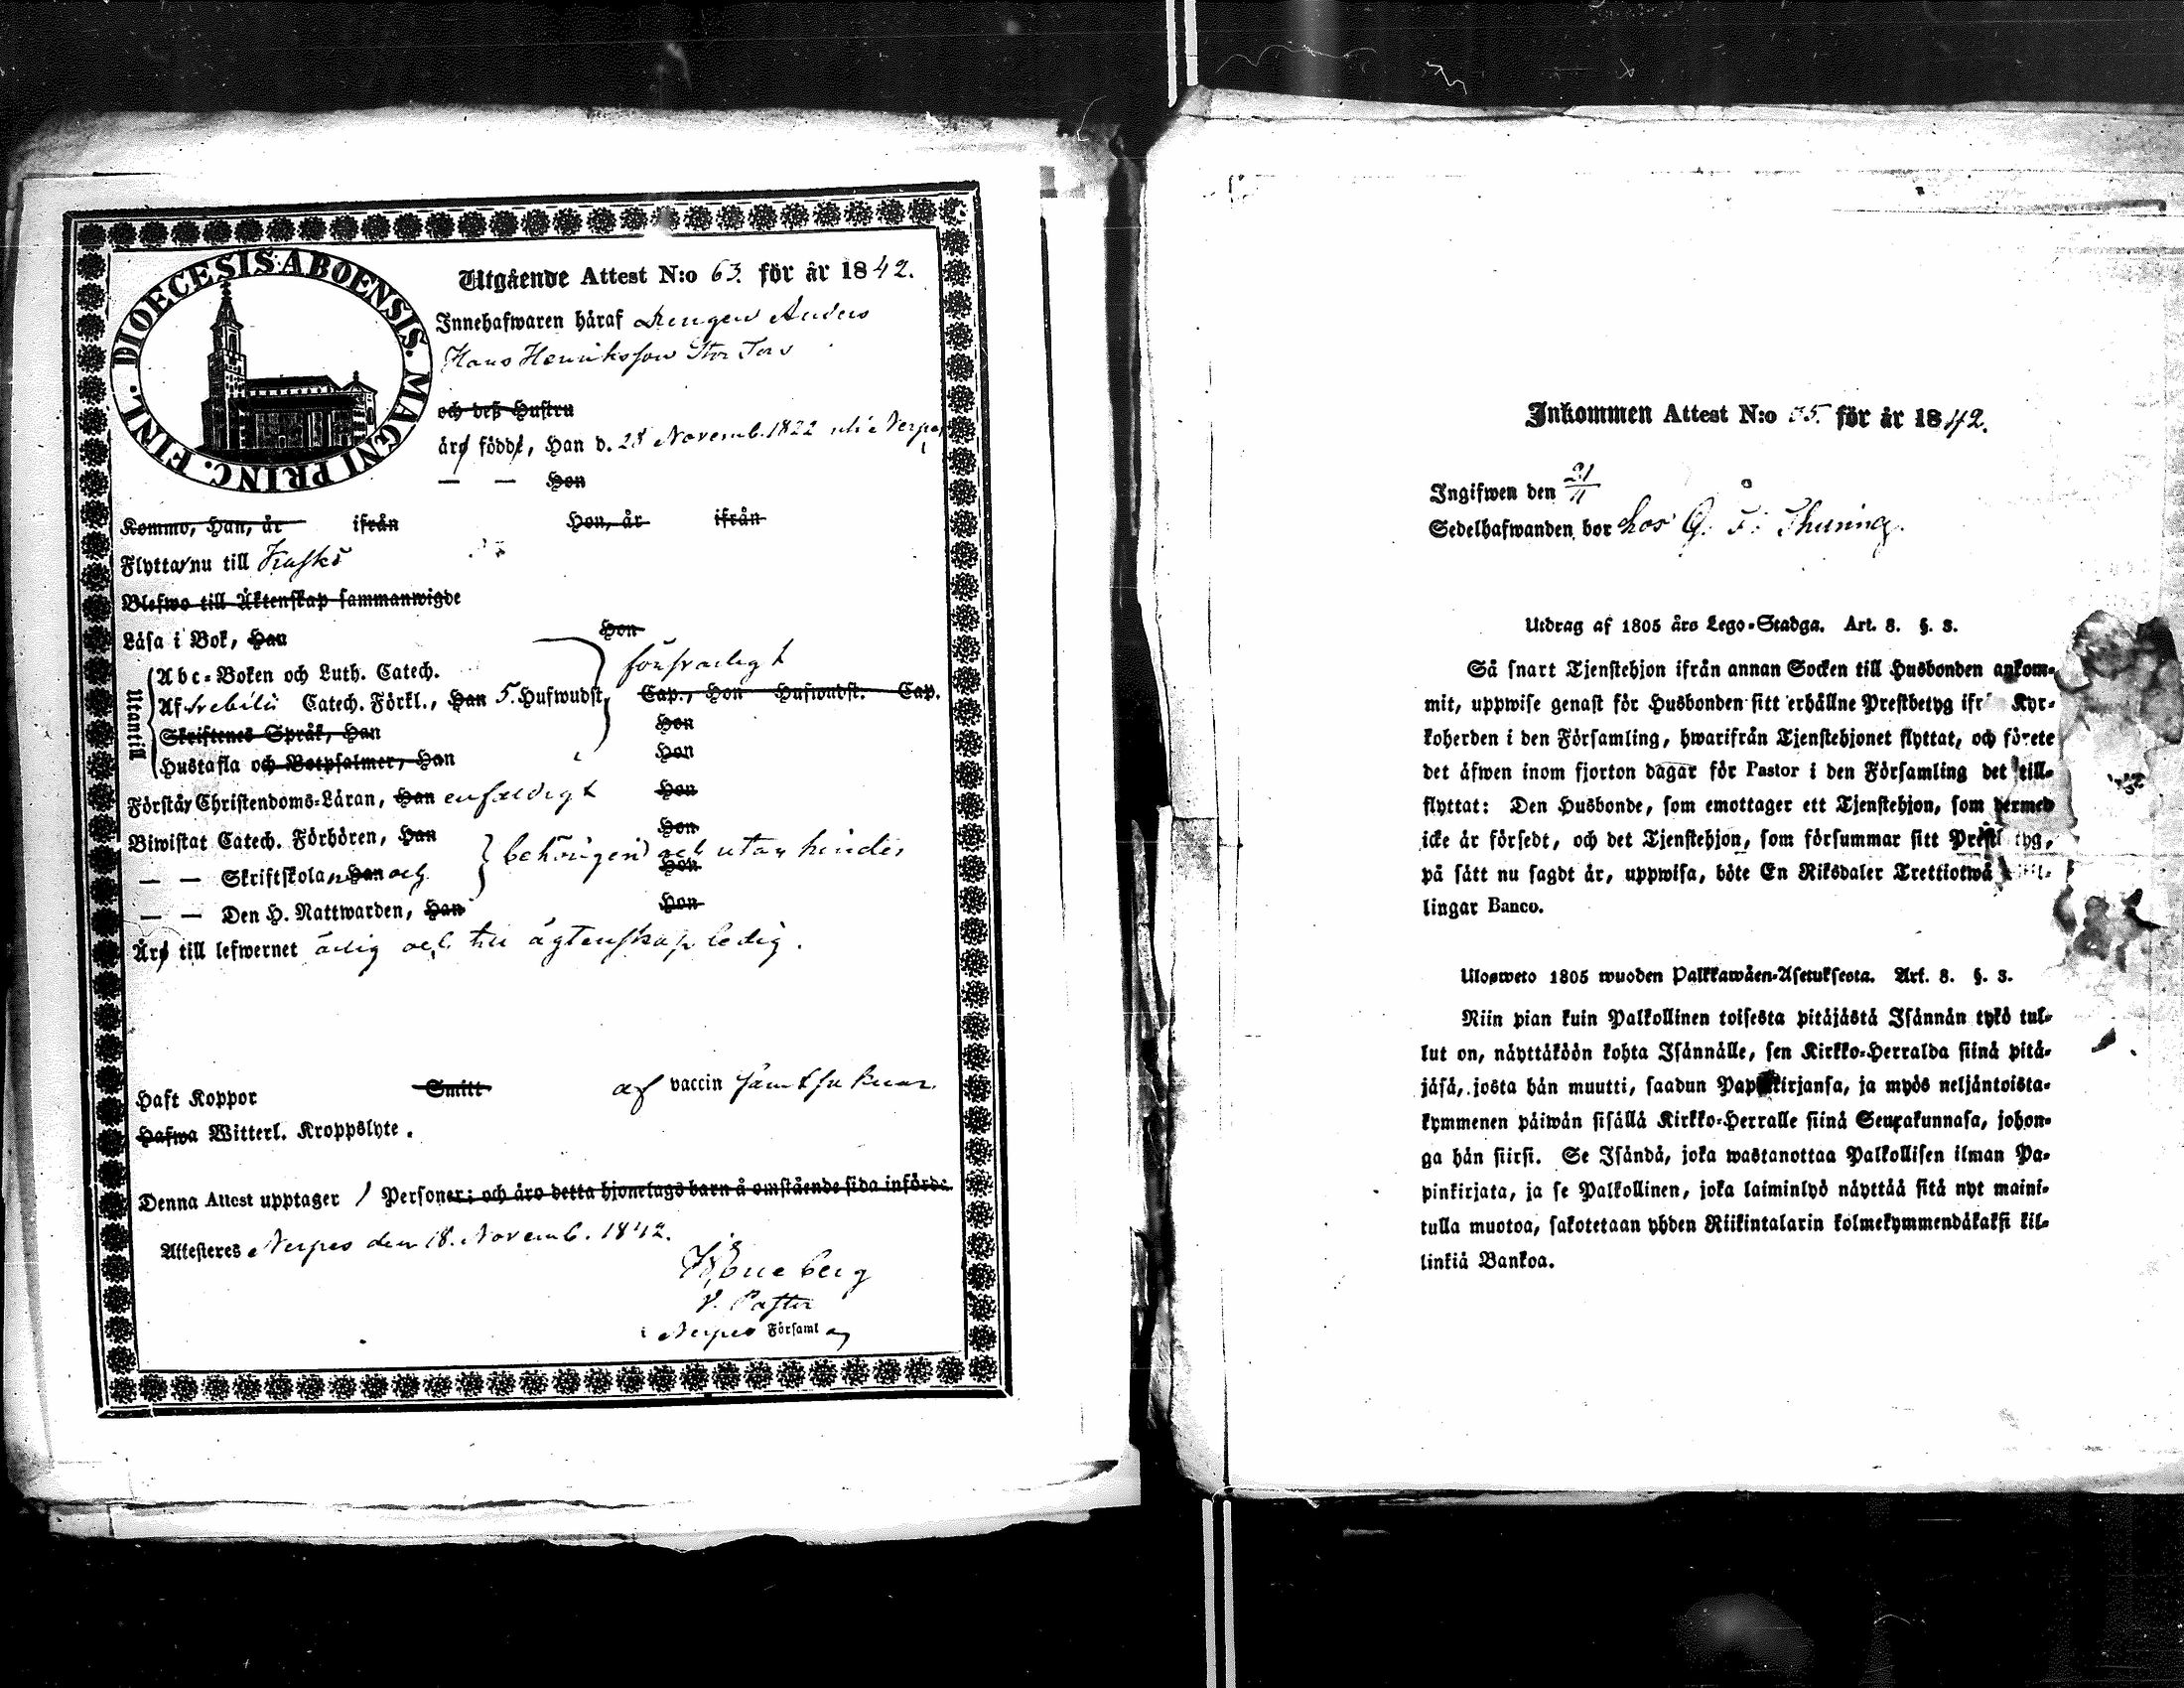 DIOECESIS ABOENSIS. MAGNI PRINC. FINL.
Utgående Attest N:o 63. för år 1842.
Innehafwaren häraf Drengen Anders
Hans Henriksson Stor Tors
och deß Hustru
äro född, Han d. 28 Novemb. 1822 uti Nerpes
— — Hon
Kommo, Han, år ifrån Hon, år ifrån
Flytta nu till Kaskö
Blefwo till Äktenskap sammanwigde
Läsa i Bok, Han Hon
försvarligt
Utantill
Abc-Boken och Luth. Catech.
Af Svebilii Catech. Förkl., Han 5. Hufwudst. Cap., Hon Hufwudst. Cap.
Skriftenes Språk, Han Hon
Hustafla och Botpsalmer, Han Hon
Förstår Christendoms-Läran, Han enfaldigt Hon
Biwistat Catech. Förhören, Han Hon
behörigen och utan hinder
— — Skriftskolan Han och Hon
— — Den H. Nattwarden, Han Hon
Äro till lefwernet ärlig och till ägtenskap ledig.
Haft Koppor Smitt af vaccin
Hafwa Witterl. Kroppslyte.
Denna Attest upptager 1 Personer; och äro detta hjonelags barn å omstående sida införde.
Attesteres Nerpes den 18. Novemb. 1842.
V. Pastor
i Nerpes Församl
Inkommen Attest N:o 55. för år 1842.
Ingifwen den 21/11
Sedelhafwanden bor hos G. F. Thuning.
Utdrag af 1805 års Lego-Stadga. Art. 8. §. 3.
Så snart Tjenstehjon ifrån annan Socken till Husbonden ankom-
mit, uppwise genast för Husbonden sitt erhållne Prestbetyg ifr Kyr-
koherden i den Församling, hwarifrån Tjenstehjonet flyttat, och förete
det äfwen inom fjorton dagar för Pastor i den Församling det till-
flyttat: Den Husbonde, som emottager ett Tjenstehjon, som dermed
icke är försedt, och det Tjenstehjon, som försummar sitt Prest tyg,
på sätt nu sagdt är, uppwisa, böte En Riksdaler Trettiotwå
lingar Banco.
Ulosweto 1805 wuoden Palkkawäen-Asetuksesta. Art. 8. §. 3.
Niin pian kuin Palkollinen toisesta pitäjästä Isännän tykö tul-
lut on, näyttäköön kohta Isännälle, sen Kirkko-Herralda siinä pitä-
jäsä, josta hän muutti, saadun Papinkirjansa, ja myös neljäntoista-
kymmenen päiwän sisällä Kirkko-Herralle siinä Seurakunnasa, johon-
ga hän siirsi. Se Isändä, joka wastanottaa Palkollisen ilman Pa-
pinkirjata, ja se Palkollinen, joka laiminlyö näyttää sitä nyt maini-
tulla muotoa, sakotetaan yhden Riikintalarin kolmekymmendäkaksi kil-
linkiä Bankoa.